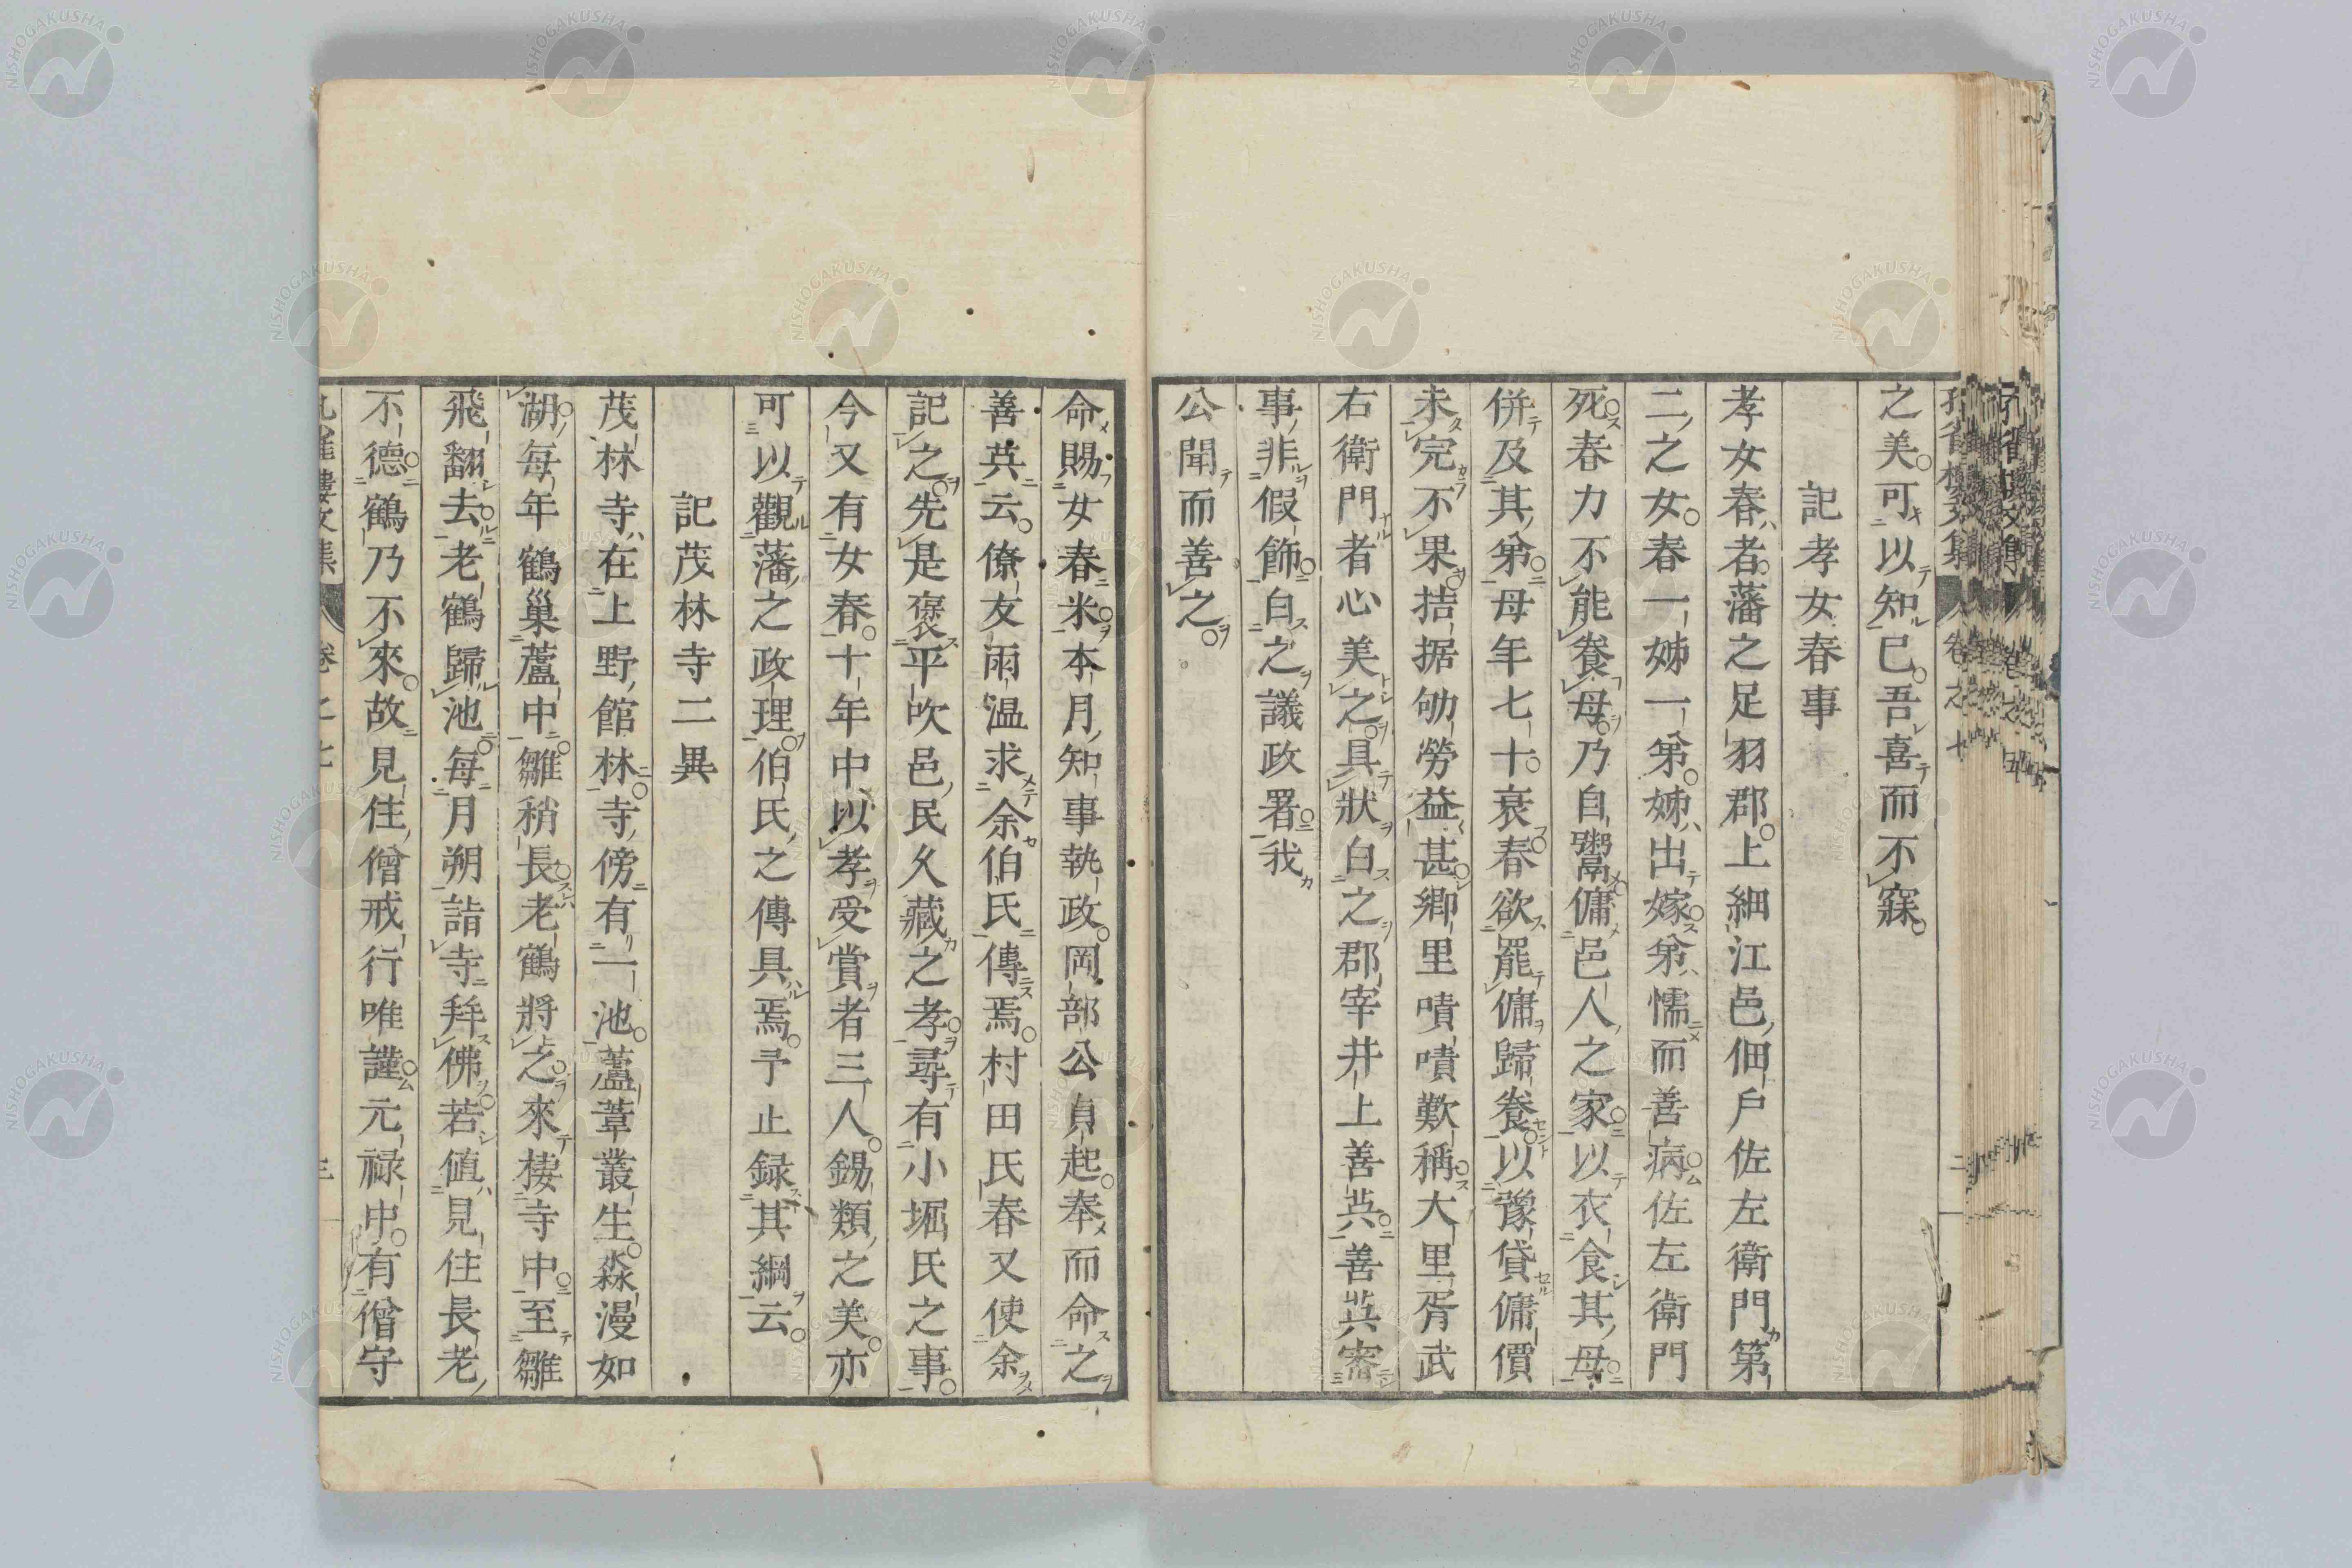 孔雀樓文集　卷之七　二
之美可以知已吾喜而不寐
記孝女春事
孝女春者藩之足羽郡上細江邑佃戶佐左衛門第
二之女春一姊一弟姊出嫁弟懦而善病佐左衛門
死春力不能養母乃自鬻傭邑人之家以衣食其母
併及其弟母年七十衰春欲罷傭歸養以豫貸傭價
未完不果拮据劬勞益甚鄉里嘖嘖歎稱大里胥武
右衛門者心美之具狀白之郡宰井上善兵善兵審
事非假飾白之議政署我
公聞而善之
命賜女春米本月知事執政岡部公貞起奉而命之
善兵云僚友雨温求余伯氏傳焉村田氏春又使余
記之先是褒平吹邑民久藏之孝尋有小堀氏之事
今又有女春十年中以孝受賞者三人錫類之美亦
可以觀藩之政理伯氏之傳具焉予止録其綱云
記茂林寺二異
茂林寺在上野館林寺傍有一池蘆葦叢生淼漫如
湖每年鶴巢蘆中雛稍長老鶴將之來棲寺中至雛
飛翻去老鶴歸池每月朔詣寺拜佛若値見住長老
不德鶴乃不來故見住僧戒行唯謹元禄中有僧守
孔雀樓文集　卷之七　三
NISHOGAKUSHA